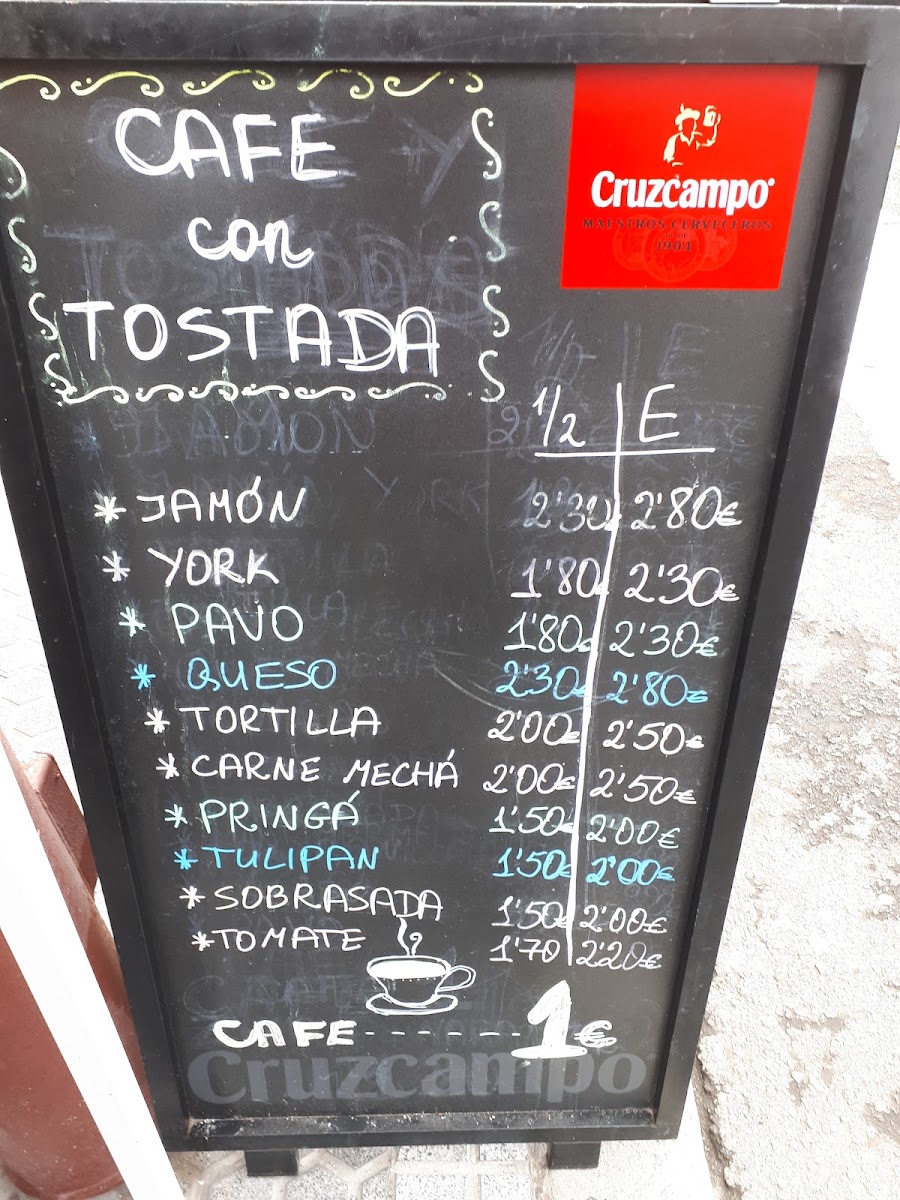 CAFE
con
TOSTADA
Cruzcampo
MAESTROS CERVECEROS
1904
1/2 E
* JAMÓN 2'30€ 2'80€
* YORK 1'80€ 2'30€
* PAVO 1'80€ 2'30€
* QUESO 2'30€ 2'80€
* TORTILLA 2'00€ 2'50€
* CARNE MECHÁ 2'00€ 2'50€
* PRINGÁ 1'50€ 2'00€
* TULIPAN 1'50€ 2'00€
* SOBRASADA 1'50€ 2'00€
* TOMATE 1'70 2'20€
CAFE------- 1€
Cruzcampo